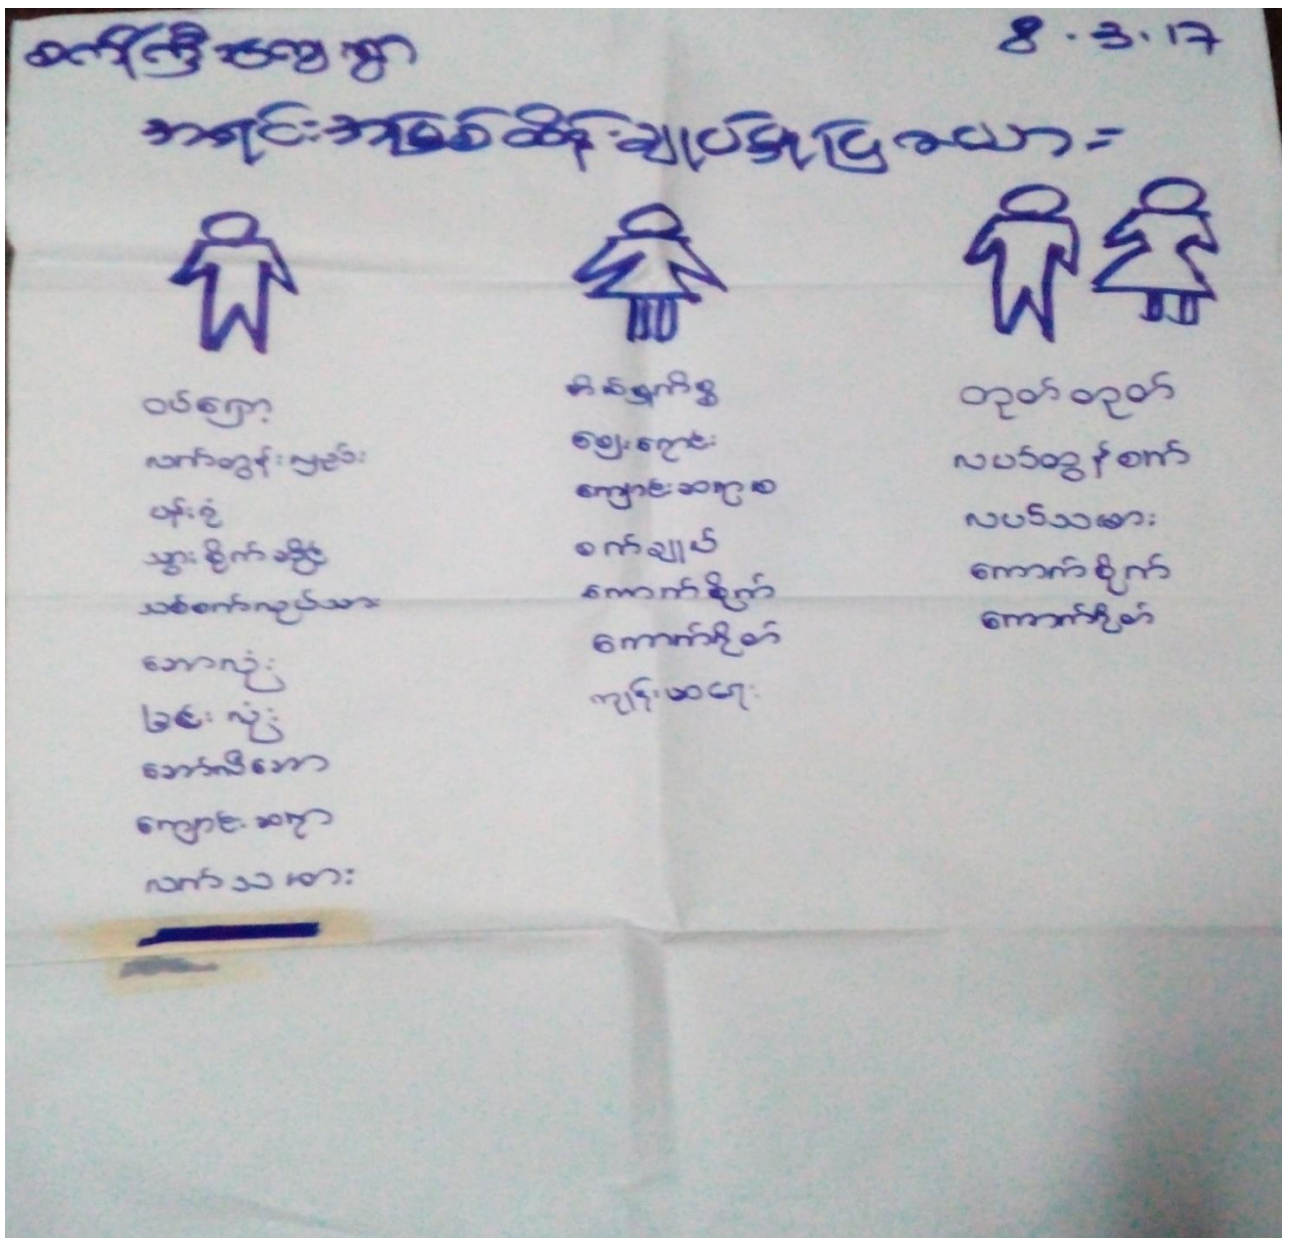 8.3.17
အရင်းအမြစ်ထိန်းချုပ်မှုပြဇယား =
ဝပ်ရှော့
လက်တွန်းလှည်း
ပန်းရံ
သွားစိုက်ဆိုင်
သစ်စက်လုပ်သား
ဘောလုံး
ခြင်းလုံး
ဘော်လီဘော
ကျောင်းဆရာ
လက်သမား
ဈေးရောင်း
ကျောင်းဆရာမ
စက်ချုပ်
ကောက်စိုက်
ကောက်ရိတ်
ကျန်းမာရေး
တုတ်တုတ်
လယ်ထွန်စက်
လယ်သမား
ကောက်စိုက်
ကောက်ရိတ်